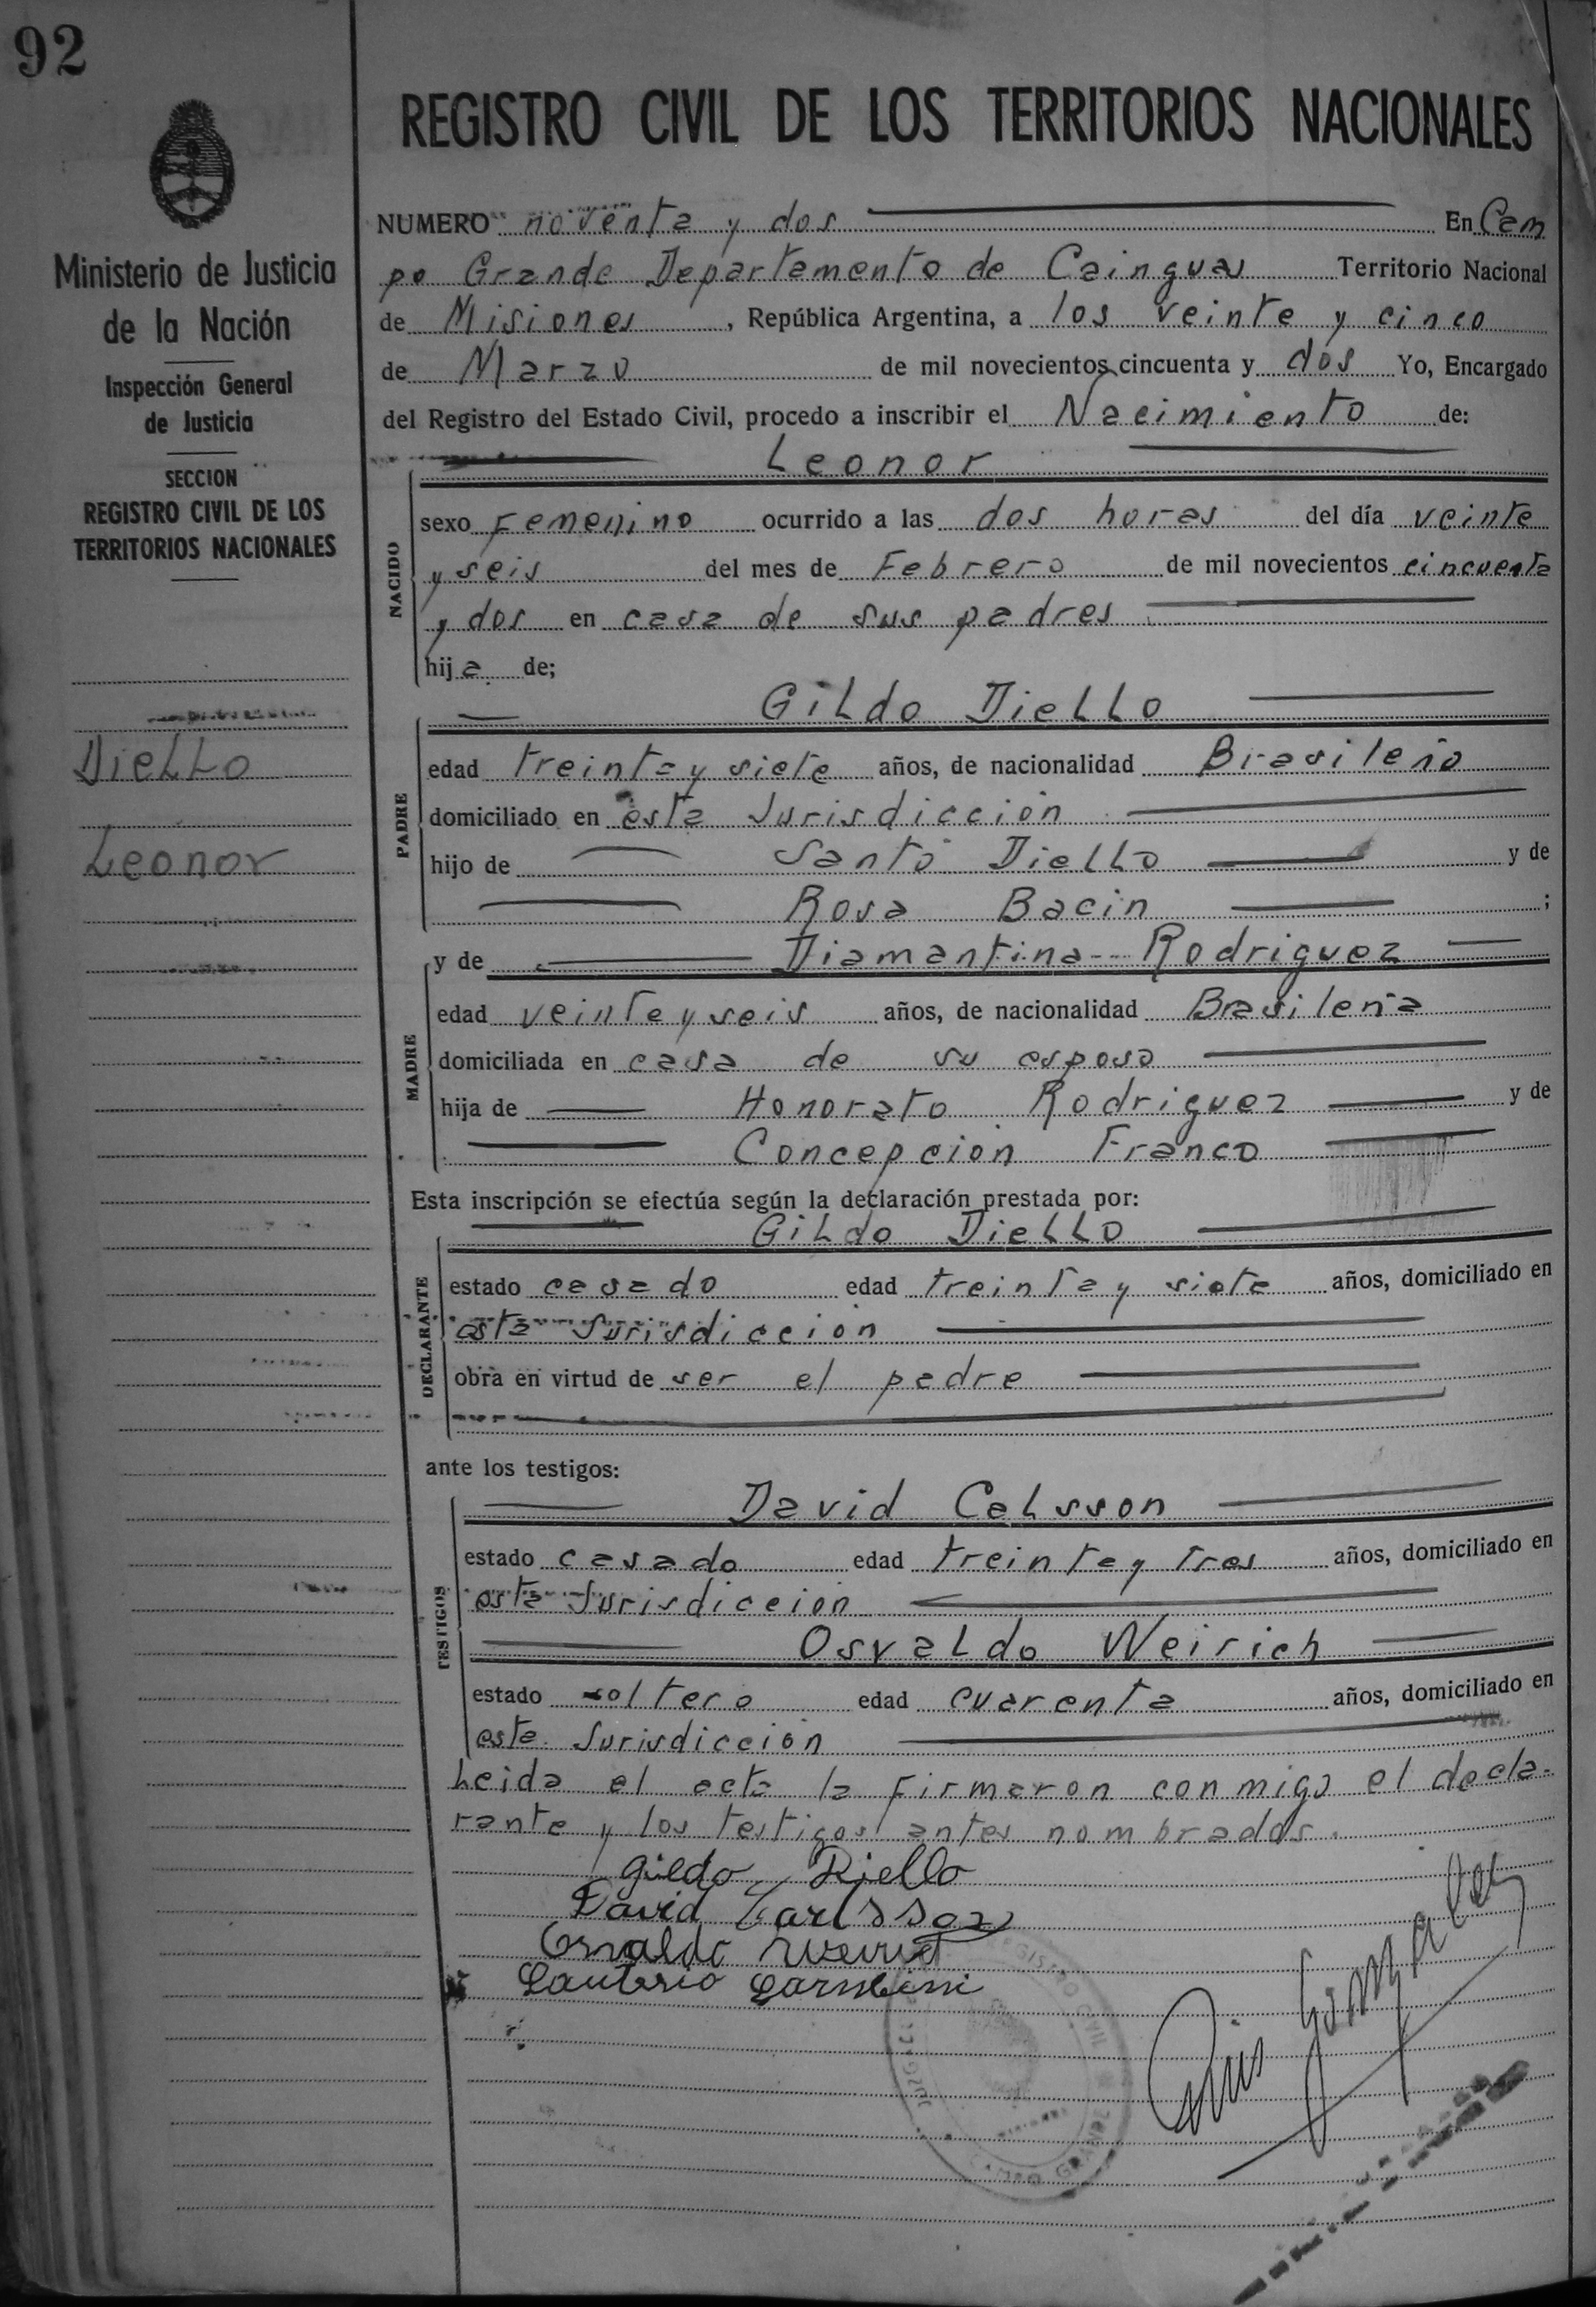 92
REGISTRO CIVIL DE LOS TERRITORIOS NACIONALES
Ministerio de Justicia
de la Nación
Inspección General
de Justicia
SECCION
REGISTRO CIVIL DE LOS
TERRITORIOS NACIONALES
Diello
Leonor
NUMERO noventa y dos En Cam
po Grande Departamento de Cainguas Territorio Nacional
de Misiones, República Argentina, a los veinte y cinco
de Marzo de mil novecientos cincuenta y dos Yo, Encargado
del Registro del Estado Civil, procedo a inscribir el Nacimiento de:
Leonor
NACIDO
sexo Femenino ocurrido a las dos horas del día veinte
y seis del mes de Febrero de mil novecientos cincuenta
y dos en casa de sus padres
hija de;
Gildo Diello
PADRE
edad treinta y siete años, de nacionalidad Brasileño
domiciliado en esta Jurisdicción
hijo de Santo Diello y de
Rosa Bacin ;
y de Diamantina Rodriguez
MADRE
edad veinte y seis años, de nacionalidad Brasileña
domiciliada en casa de su esposo
hija de Honorato Rodriguez y de
Concepción Franco
Esta inscripción se efectúa según la declaración prestada por:
Gildo Diello
DECLARANTE
estado casado edad treinta y siete años, domiciliado en
esta Jurisdicción
obra en virtud de ser el padre
ante los testigos:
David Calsson
TESTIGOS
estado casado edad treinta y tres años, domiciliado en
esta Jurisdicción
Osvaldo Weirich
estado soltero edad cuarenta años, domiciliado en
esta Jurisdicción
Leida el acta la firmaron conmigo el decla-
rante y los testigos antes nombrados.
Gildo Diello
David Carlsson
Osvaldo
Luis Gonzalez
REGISTRO CIVIL
CAMPO GRANDE